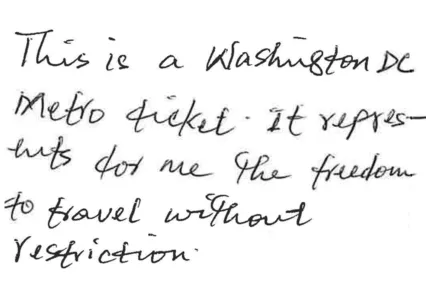 This is a Washington DC
Metro ticket. It repres-
ents for me the freedom
to travel without
restriction.